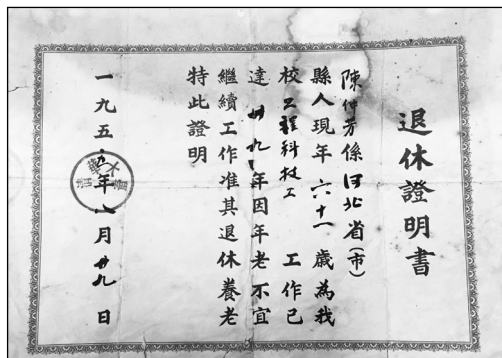 退休證明書
陳仲芳係河北省(市)
縣人現年六十一歲為我
校工程科技工 工作已
達卅九年因年老不宜
繼續工作准其退休養老
特此證明
一九五九年八月廿九日